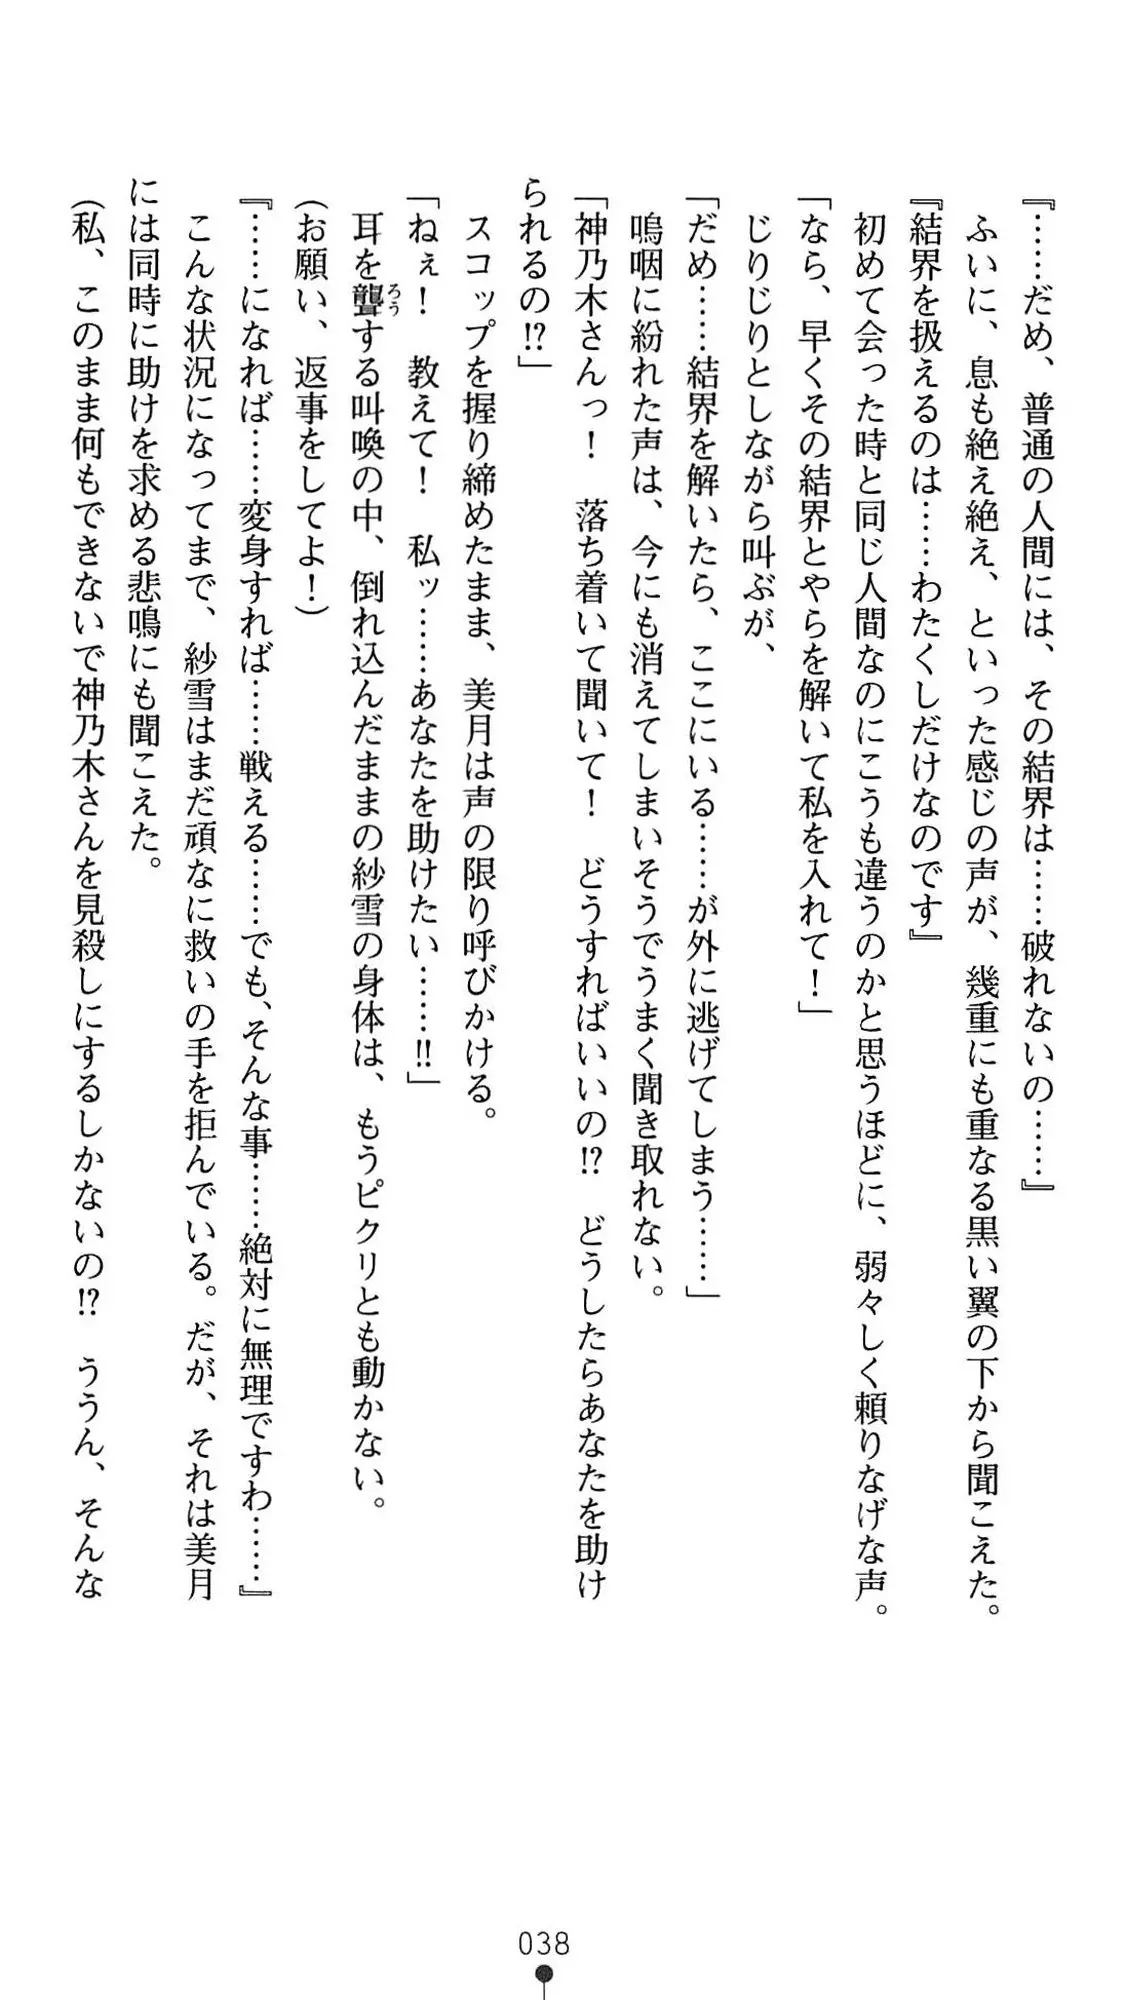 『……だめ、普通の人間には、その結界は……破れないの……』
　ふいに、息も絶え絶え、といった感じの声が、幾重にも重なる黒い翼の下から聞こえた。
『結界を扱えるのは……わたくしだけなのです』
　初めて会った時と同じ人間なのにこうも違うのかと思うほどに、弱々しく頼りなげな声。
「なら、早くその結界とやらを解いて私を入れて！」
　じりじりとしながら叫ぶが、
「だめ……結界を解いたら、ここにいる……が外に逃げてしまう……」
　嗚咽に紛れた声は、今にも消えてしまいそうでうまく聞き取れない。
「神乃木さんっ！　落ち着いて聞いて！　どうすればいいの⁉　どうしたらあなたを助け
られるの⁉」
　スコップを握り締めたまま、美月は声の限り呼びかける。
「ねぇ！　教えて！　私ッ……あなたを助けたい……‼」
　耳を聾する叫喚の中、倒れ込んだままの紗雪の身体は、もうピクリとも動かない。
ろう
（お願い、返事をしてよ！）
『……になれば……変身すれば……戦える……でも、そんな事……絶対に無理ですわ……』
　こんな状況になってまで、紗雪はまだ頑なに救いの手を拒んでいる。だが、それは美月
には同時に助けを求める悲鳴にも聞こえた。
（私、このまま何もできないで神乃木さんを見殺しにするしかないの⁉　ううん、そんな
038